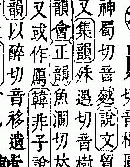 神蜀切音贖說文質
又集韻殊遇切音樹
韻會正韻魚澗切
又或作贗韓非子說
韻以醉切音移遺